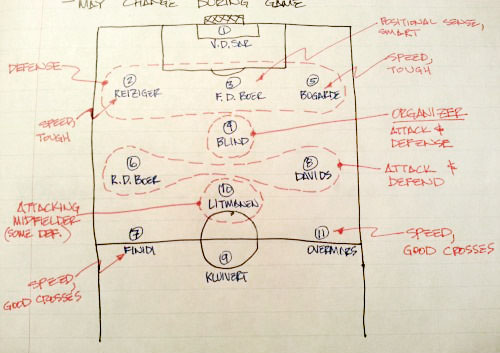 - MAY CHANGE DURING GAME
①
V.D. SAR
POSITIONAL SENSE,
SMART
DEFENSE
② ③ ⑤
REIZIGER F.D. BOER BOGARDE
SPEED,
TOUGH
SPEED
TOUGH
④
BLIND
ORGANIZER
ATTACK &
DEFENSE
⑥ ⑧
R.D. BOER DAVIDS
ATTACK &
DEFEND
⑩
LITMANEN
ATTACKING
MIDFIELDER
(SOME DEF.)
⑦ ⑪
FINIDI OVERMARS
SPEED,
GOOD CROSSES
⑨
KLUIVERT
SPEED,
GOOD CROSSES